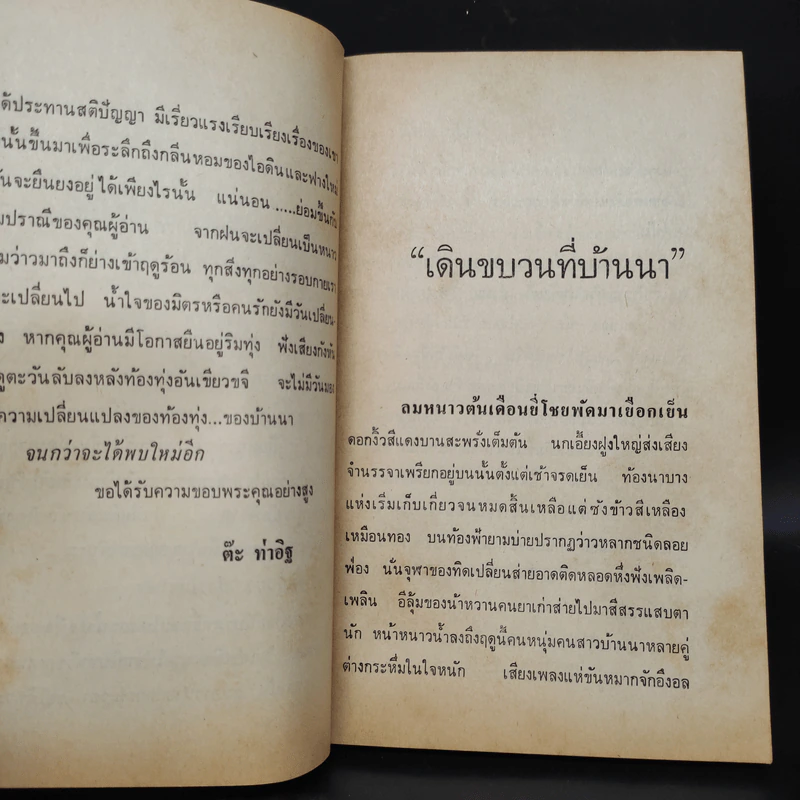 ประทานสติปัญญา มีเรี่ยวแรงเรียบเรียงเรื่องของเขา
นั้นขึ้นมาเพื่อระลึกถึงกลิ่นหอมของไอดินและฟางใหม่
จะยืนยงอยู่ได้เพียงไรนั้น แน่นอน .....ย่อมขึ้นกับ
ปราณีของคุณผู้อ่าน จากฝนจะเปลี่ยนเป็นหนาว
ว่าวมาถึงก็ย่างเข้าฤดูร้อน ทุกสิ่งทุกอย่างรอบกายเรา
จะเปลี่ยนไป น้ำใจของมิตรหรือคนรักยังมีวันเปลี่ยน-
หากคุณผู้อ่านมีโอกาสยืนอยู่ริมทุ่ง ฟังเสียงกังหัน
ดูตะวันลับลงหลังท้องทุ่งอันเขียวขจี จะไม่มีวันมอง
ความเปลี่ยนแปลงของท้องทุ่ง...ของบ้านนา
จนกว่าจะได้พบใหม่อีก
ขอได้รับความขอบพระคุณอย่างสูง
ต๊ะ ท่าอิฐ
“เดินขบวนที่บ้านนา”
ลมหนาวต้นเดือนยี่โชยพัดมาเยือกเย็น
ดอกงิ้วสีแดงบานสะพรั่งเต็มต้น นกเอี้ยงฝูงใหญ่ส่งเสียง
จำนรรจาเพรียกอยู่บนนั้นตั้งแต่เช้าจรดเย็น ท้องนาบาง
แห่งเริ่มเก็บเกี่ยวจนหมดสิ้นเหลือแต่ซังข้าวสีเหลือง
เหมือนทอง บนท้องฟ้ายามบ่ายปรากฏว่าวหลากชนิดลอย
ฟ่อง นั่นจุฬาของทิดเปลี่ยนส่ายอาดติดหลอดหึ่งฟังเพลิด-
เพลิน อีลุ้มของน้าหวานคนยาเก่าส่ายไปมาสีสรรแสบตา
นัก หน้าหนาวน้ำลงถึงฤดูนี้คนหนุ่มคนสาวบ้านนาหลายคู่
ต่างกระหึ่มในใจหนัก เสียงเพลงแห่ขันหมากจักอึงอล